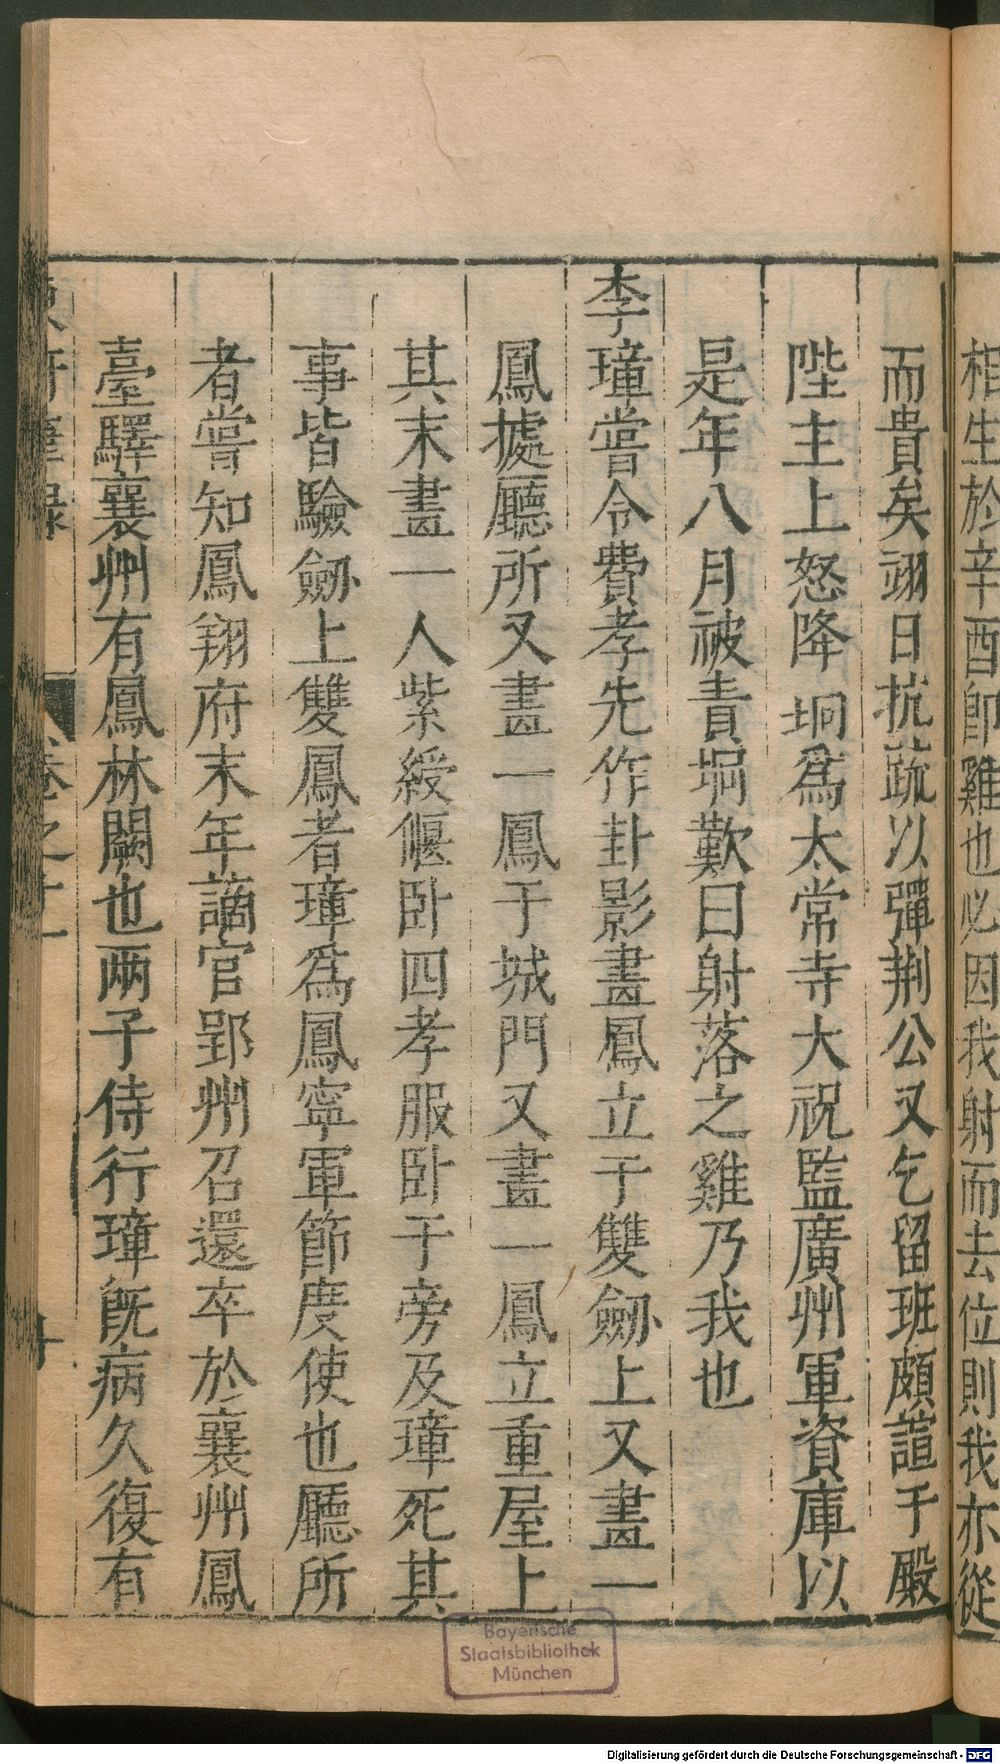 相生於辛酉即雞也必因我射而去位則我亦從
而貴矣翊日抗疏以彈荆公又乞留班頗諠于殿
陛主上怒降坰爲太常寺大祝監廣州軍資庫以
是年八月被責坰歎曰射落之雞乃我也
李璋嘗令費孝先作卦影畫鳳立于雙劒上又畫一
鳳據廳所又畫一鳳于城門又畫一鳳立重屋上
其末畫一人紫綬偃卧四孝服卧于旁及璋死其
事皆驗劒上雙鳳者璋爲鳳寧軍節度使也廳所
者嘗知鳳翔府末年謫官郢州召還卒於襄州鳳
臺驛襄州有鳳林關也兩子侍行璋旣病久復有
卷之十一
十
Bayerische
Staatsbibliothek
München
Digitalisierung gefördert durch die Deutsche Forschungsgemeinschaft - DFG